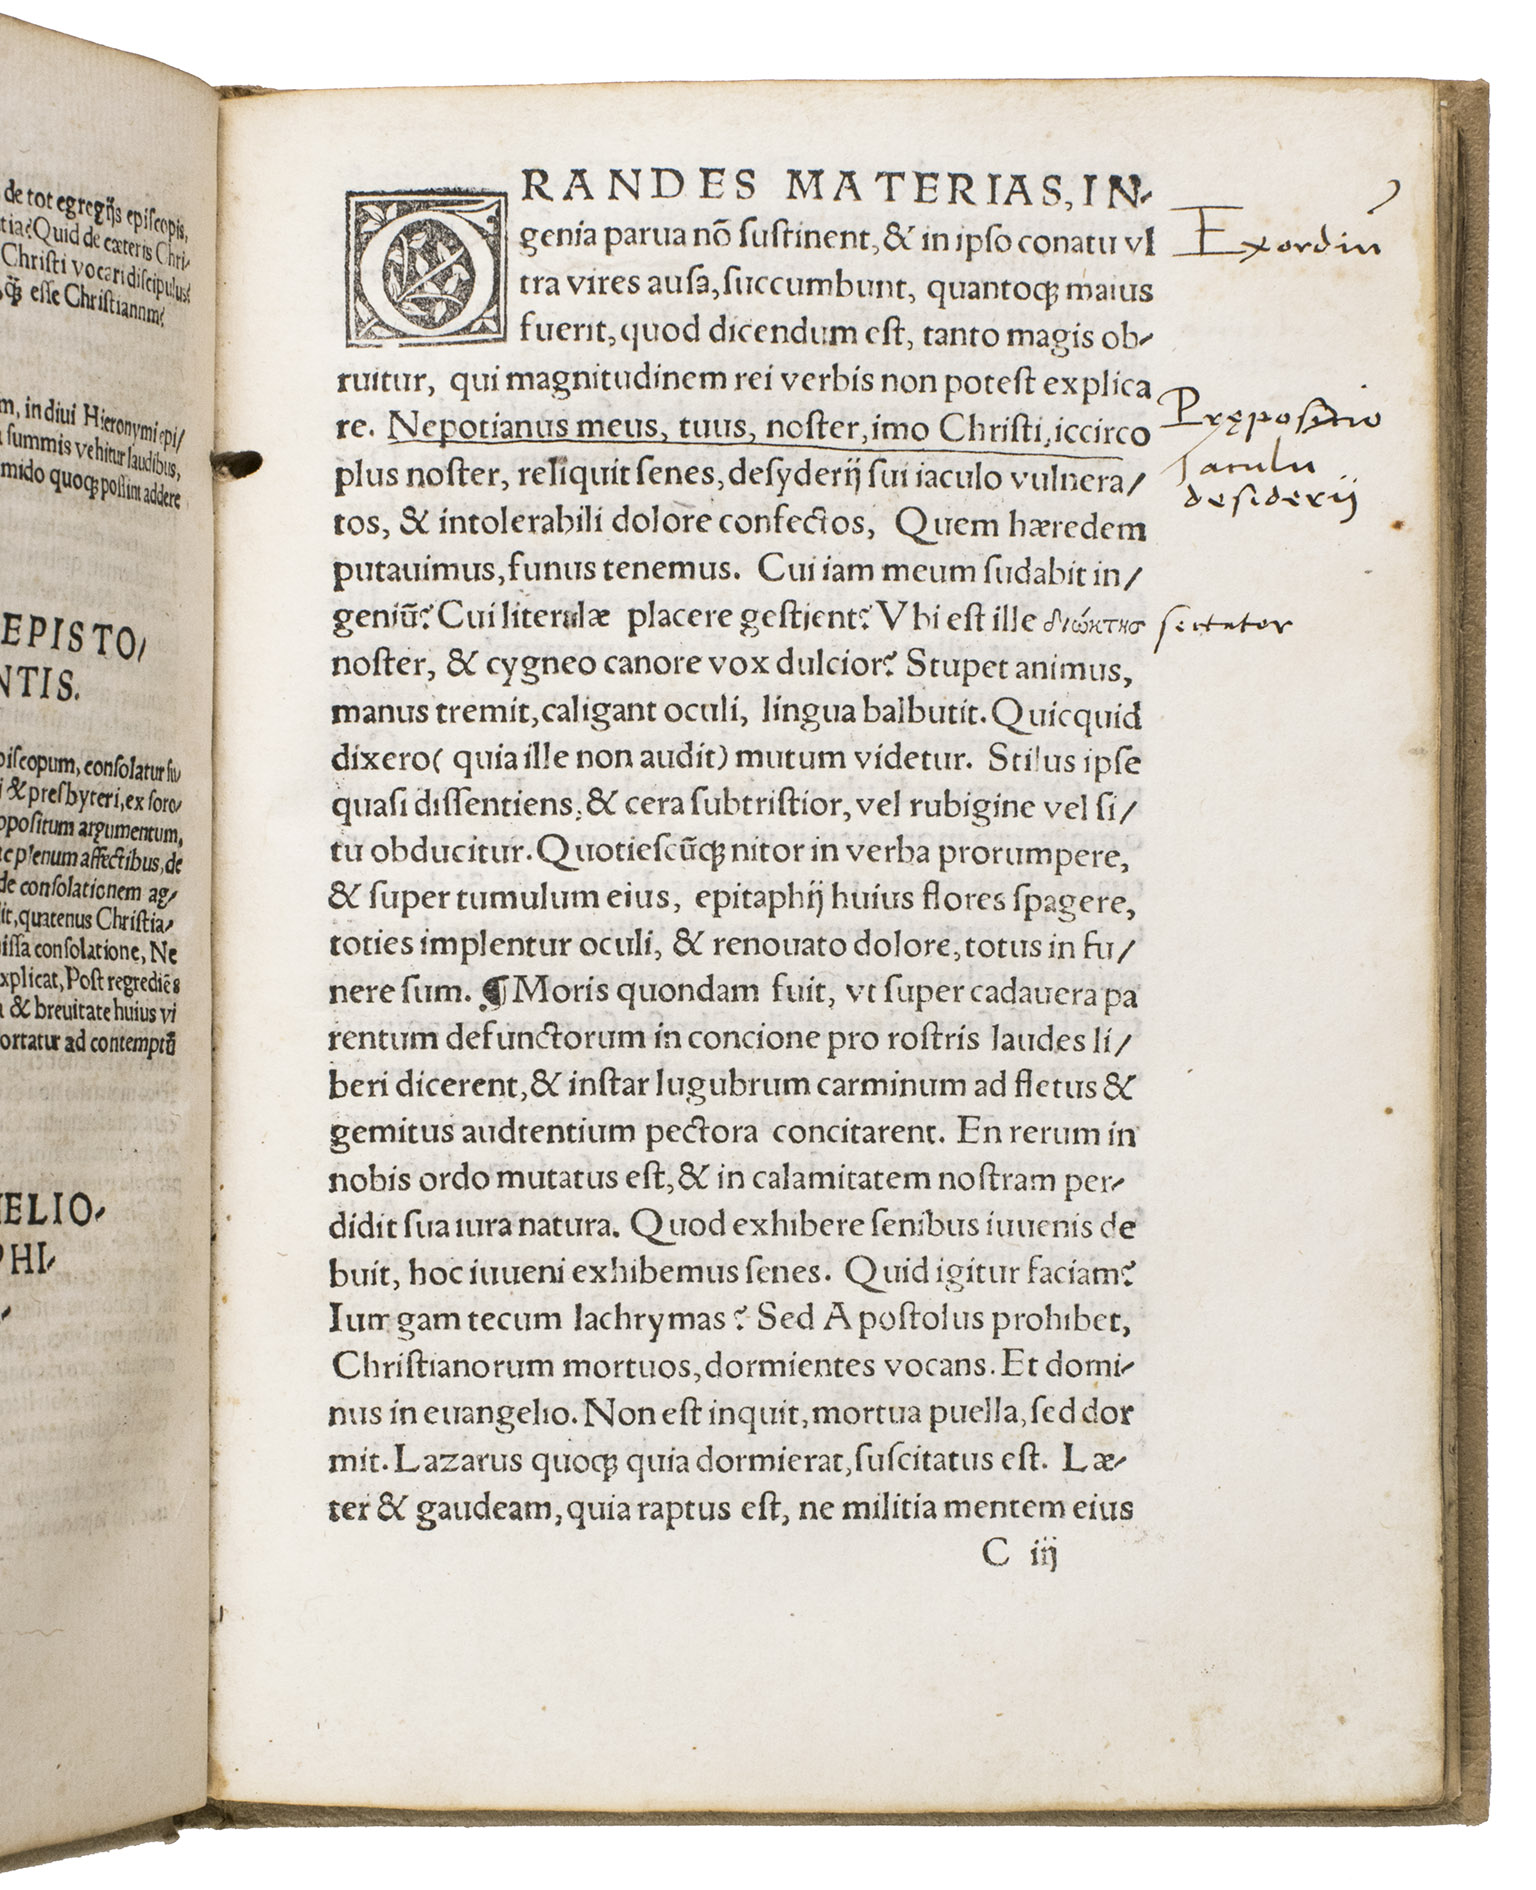 de tot egregijs episcopis,
Quid de cæteris Chri-
Christi vocari discipulus?
esse Christianum?
in diui Hieronymi epi/
summis vehitur laudibus,
quoqꝫ possint addere
EPISTO/
NTIS.
piscopum, consolatur su/
& presbyteri, ex soro/
opositum argumentum,
plenum affectibus, de
de consolationem ag/
quatenus Christia/
issa consolatione, Ne
xplicat, Post regrediẽs
& breuitate huius vi
ortatur ad contemptũ
ELIO-
PHI-
GRANDES MATERIAS, IN-
genia parua nõ sustinent, & in ipso conatu vl
tra vires ausa, succumbunt, quantoqꝫ maius
fuerit, quod dicendum est, tanto magis ob-
ruitur, qui magnitudinem rei verbis non potest explica
re. Nepotianus meus, tuus, noster, imo Christi, iccirco
plus noster, reliquit senes, desyderij sui iaculo vulnera/
tos, & intolerabili dolore confectos, Quem hæredem
putauimus, funus tenemus. Cui iam meum sudabit in/
geniũ? Cui literulæ placere gestient? Vbi est ille διώκτης
noster, & cygneo canore vox dulcior? Stupet animus,
manus tremit, caligant oculi, lingua balbutit. Quicquid
dixero( quia ille non audit) mutum videtur. Stilus ipse
quasi dissentiens, & cera subtristior, vel rubigine vel si/
tu obducitur. Quotiescũqꝫ nitor in verba prorumpere,
& super tumulum eius, epitaphij huius flores spagere,
toties implentur oculi, & renouato dolore, totus in fu/
nere sum. ¶ Moris quondam fuit, vt super cadauera pa
rentum defunctorum in concione pro rostris laudes li/
beri dicerent, & instar lugubrum carminum ad fletus &
gemitus audtentium pectora concitarent. En rerum in
nobis ordo mutatus est, & in calamitatem nostram per-
didit sua iura natura. Quod exhibere senibus iuuenis de
buit, hoc iuueni exhibemus senes. Quid igitur faciam?
Iungam tecum lachrymas? Sed Apostolus prohibet,
Christianorum mortuos, dormientes vocans. Et domi-
nus in euangelio. Non est inquit, mortua puella, sed dor
mit. Lazarus quoqꝫ quia dormierat, suscitatus est. Læ-
ter & gaudeam, quia raptus est, ne militia mentem eius
C iij
Exordiu
Prępositio
Iaculu
desiderij
sectator